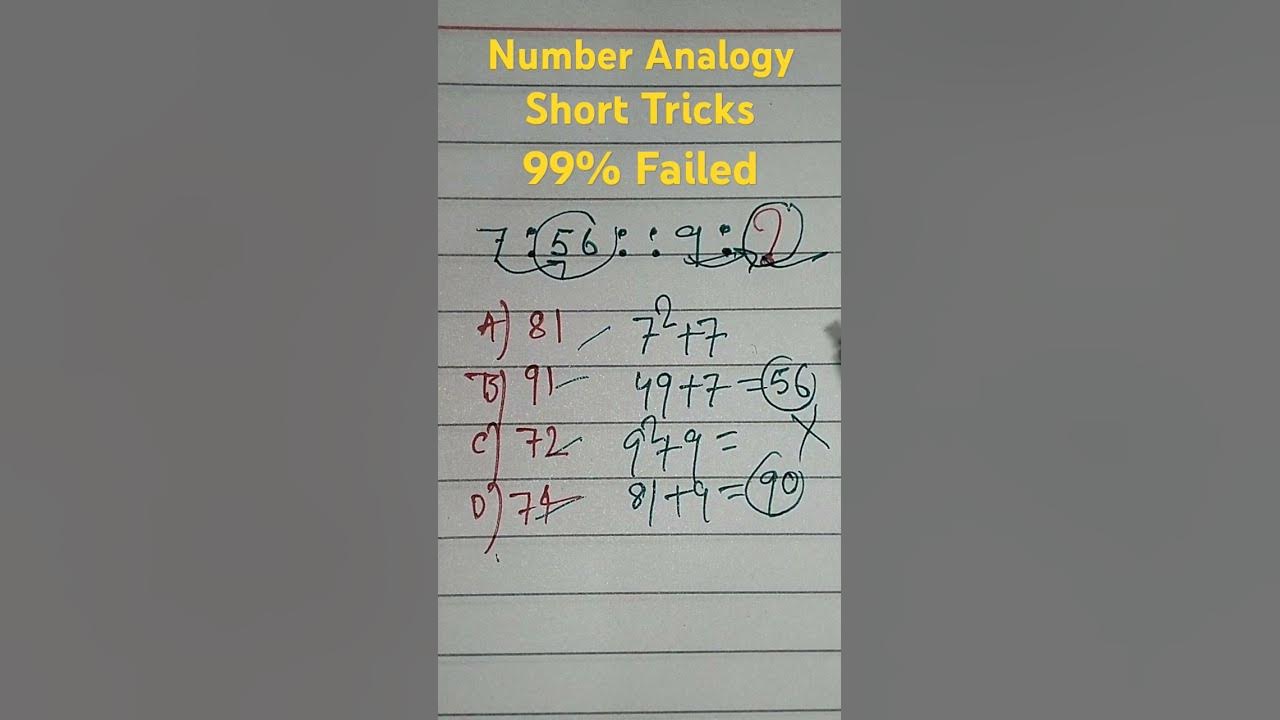 Number Analogy
Short Tricks
99% Failed
7 : 56 : : 9 : ?
A) 81 7²+7
B) 91 49+7 = 56
C) 72 9²+9 =
D) 74 81+9 = 90